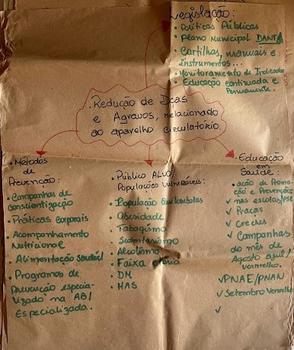 Legislação:
• Políticas Públicas
• Plano Municipal DANT/A
• Cartilhas, manuais e
Instrumentos...
• Monitoramento de Indicado
• Educação continuada e
Permanente.
Redução de Dcas
e Agravos, relacionado
ao aparelho circulatório
• Métodos
de
Prevenção:
• Campanhas de
conscientização
• Práticas corporais
• Acompanhamento
Nutricional
• Alimentação saudável
• Programas de
Prevenção especia-
lizado na AB/
Especializada.
Público Alvo:
Populações Vulneráveis:
• População Quilombolas
• Obesidade
• Tabagismo
• Sedentarismo
• Alcoolismo
• Faixa
• DM
• HAS
• Educação
em
Saúde:
• ação de Promo
ção e Prevenção
✓ nas escolas/PSE
✓ Praças
✓ Creches
✓ Campanhas
do mês de
Agosto azul/
vermelho.
✓ PNAE/PNAN
✓ Setembro Vermelho
✓
✓